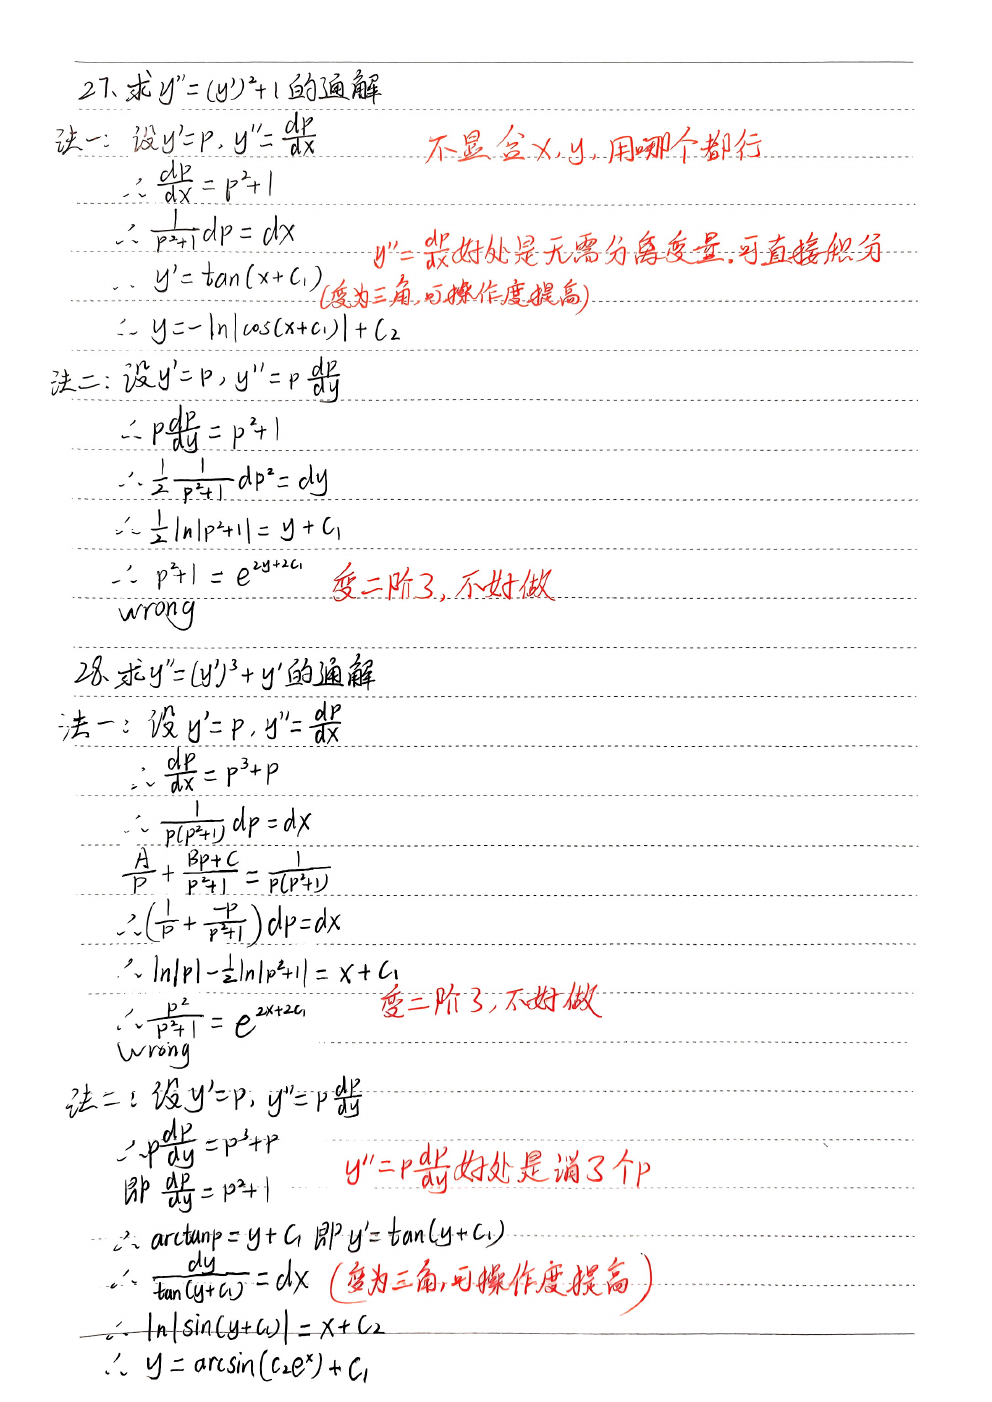 27、求y''=(y')²+1的通解
法一: 设y'=p, y''=dp/dx
不显含x,y,用哪个都行
∴ dp/dx = p²+1
∴ 1/(p²+1) dp = dx
y''=dp/dx好处是无需分离变量.可直接积分
∴ y'=tan(x+C₁)
(变为三角,可操作度提高)
∴ y=-ln|cos(x+C₁)|+C₂
法二: 设y'=p, y''=p dp/dy
∴ p dp/dy = p²+1
∴ 1/2 1/(p²+1) dp² = dy
∴ 1/2 ln|p²+1| = y+C₁
∴ p²+1 = e^(2y+2C₁)
变二阶了,不好做
wrong
28、求y''=(y')³+y'的通解
法一: 设y'=p, y''=dp/dx
∴ dp/dx = p³+p
∴ 1/(p(p²+1)) dp = dx
A/p + (Bp+C)/(p²+1) = 1/(p(p²+1))
∴ (1/p + -p/(p²+1)) dp = dx
∴ ln|p| - 1/2 ln|p²+1| = x+C₁
变二阶了,不好做
∴ p²/(p²+1) = e^(2x+2C₁)
wrong
法二: 设y'=p, y''=p dp/dy
∴ p dp/dy = p³+p
y''=p dp/dy 好处是消了个p
即 dp/dy = p²+1
∴ arctanp = y+C₁ 即 y'=tan(y+C₁)
∴ dy/tan(y+C₁) = dx (变为三角,可操作度提高)
∴ ln|sin(y+C₁)| = x+C₂
∴ y = arcsin(C₂eˣ)+C₁